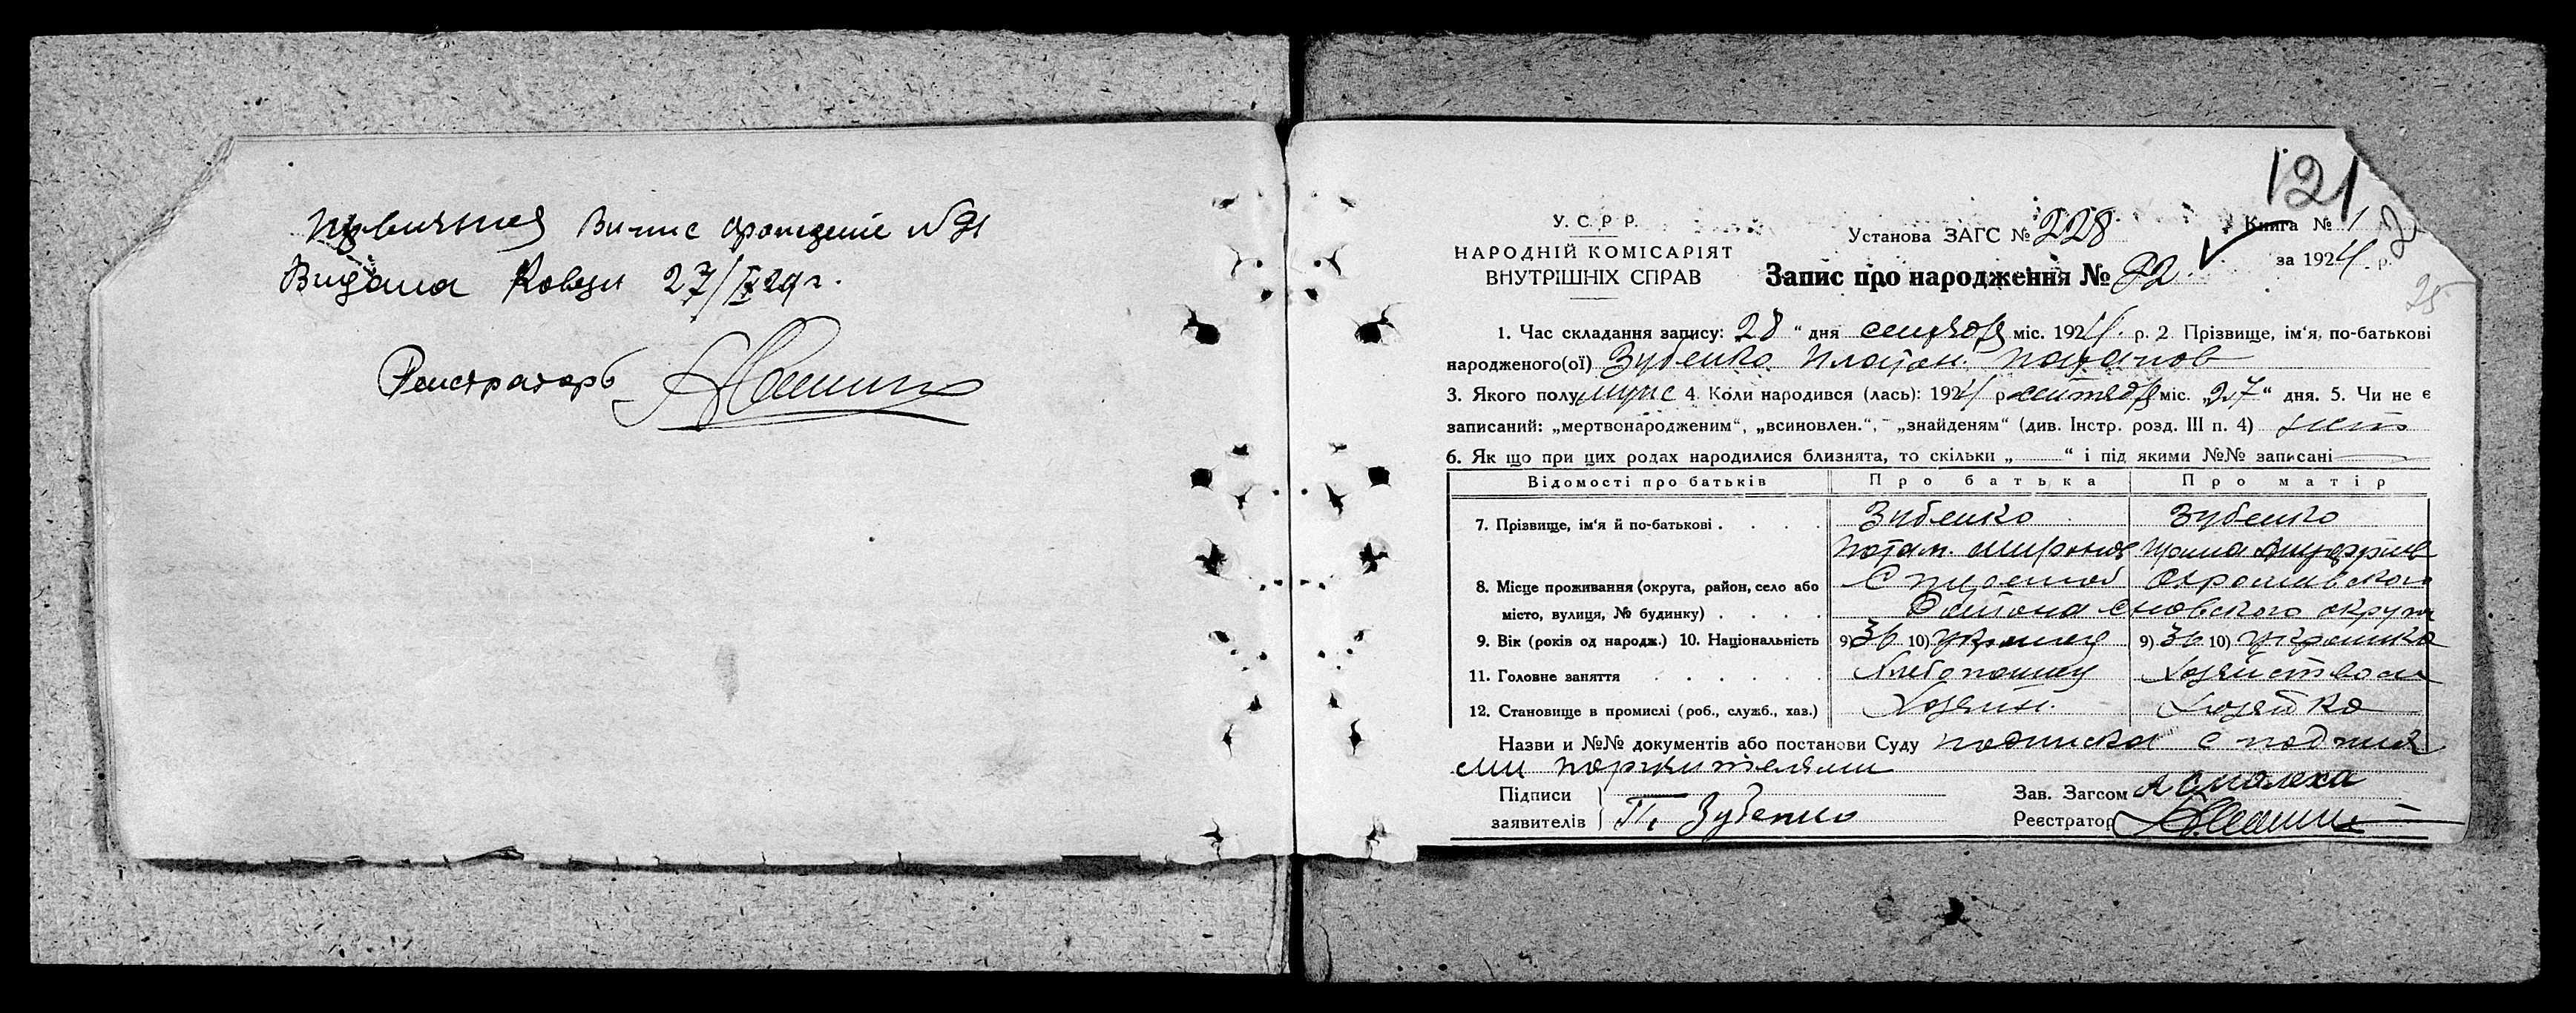 Выпис о рождение № 91
Видана 27/IX 29 г.
Регистраторь
121
У.С.Р.Р.
НАРОДНІЙ КОМІСАРІЯТ
ВНУТРІШНІХ СПРАВ
Установа ЗАГС № 228
Запис про народження № 92
Книга № 1
за 1924 р.
25
1. Час складання запису: 28 “ дня сентября міс. 1924 р. 2. Прізвище, ім‘я, по-батькові
народженого(ої) Зубенко Платон Потапов
3. Якого полу мужс 4. Коли народився (лась): 1924 р. сентября міс. „27“ дня. 5. Чи не є
записаний: „мертвонародженим“, „всиновлен.“, „знайденям“ (див. Інстр. розд. III п. 4) нет
6. Як що при цих родах народилися близнята, то скільки „ “ і під якими №№ записані
Відомості про батьків Про батька Про матір
7. Прізвище, ім‘я й по-батькові Зубенко Зубенко
Потап. Миронов
8. Місце проживання (округа, район, село або
місто, вулиця, № будинку) Района Сновского округа
9. Вік (років од народж.) 10. Національність 9) 36 10) украинец 9) 36 10) украинка
11. Головне заняття Хлебопашец Хозяйством
12. Становище в промислі (роб., служб., хаз.) Хозяин. Хозяйка
Назви и №№ документів або постанови Суду подписка с подпися
ми поручителями
Підписи
заявителів П. Зубенко
Зав. Загсом
Реєстратор